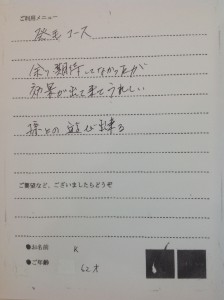 ご利用メニュー
発毛コース
余り期待してなかったが
効果が出て来てうれしい
孫との遊び出来る
ご要望など、ございましたらどうぞ
●お名前 K
●ご年齢 62才